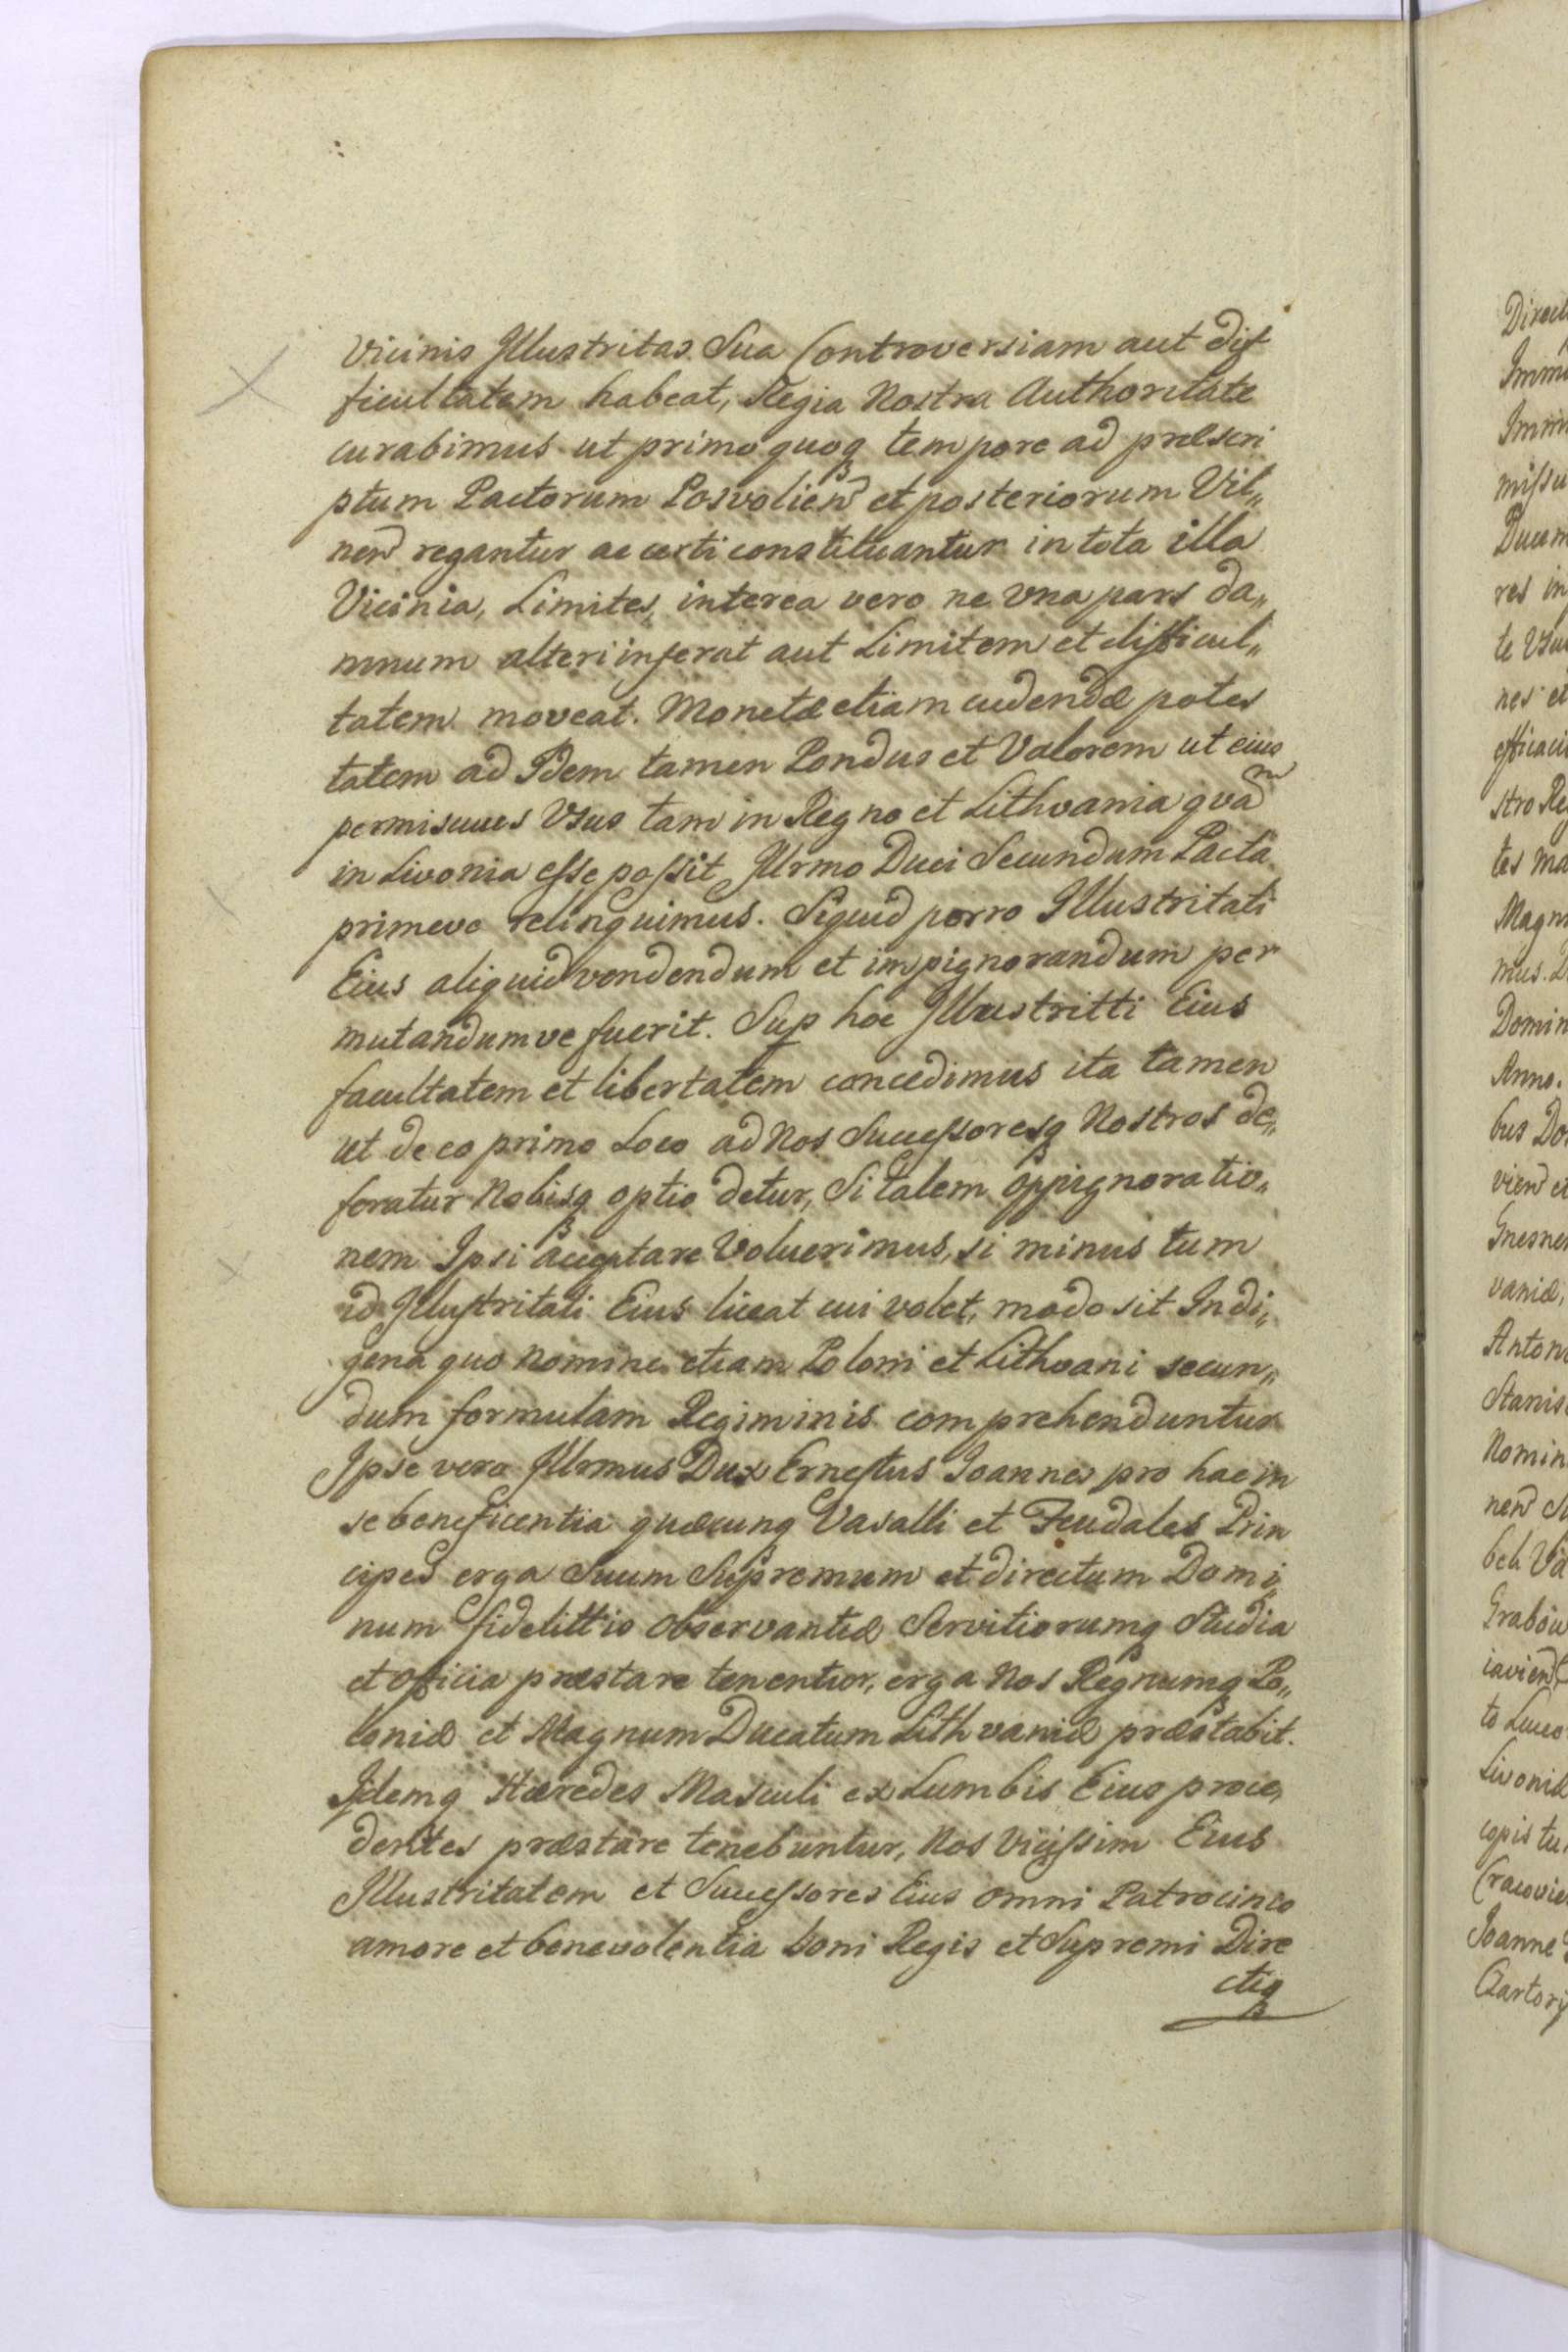 Vicinis Illustritas Sua Controversiam aut dif
ficultatem habeat, Regia Nostra Authoritate
curabimus ut primo quoq tempore ad præscri
ptum Pactorum Posvolien et posteriorum Vil„
nen regantur ac certi constituantur in tota illa
Vicinia, Limites, interea vero ne una pars da„
mnum alteri inferat aut Limitem et difficul„
tatem moveat. Monetæ etiam cudendæ potes
tatem ad Idem tamen Pondus et Valorem ut eius
permisuues Usus tam in Regno et Lithvania qvam
in Livonia esse possit Illrmo Duci Secundum Pacta
primeva relinquimus. Siquid porro Illustritati
Eius aliquid vendendum et impignorandum per
mutandumve fuerit. Sup hoc Illustritti Eius
facultatem et libertatem concedimus ita tamen
ut de eo primo Loco ad Nos Successoresq Nostros de„
feratur Nobisq optio detur, Si talem oppignoratio„
nem Ipsi acceptare Voluerimus, si minus tum
id Illustritati Eius liceat cui volet, modo sit Indi„
gena quo nomine etiam Poloni et Lithvani secun„
dum formulam Regiminis comprehenduntur
Ipse vero Illrmus Dux Ernestus Joannes pro hac in
se beneficentia quæcunq Vasalli et Feudales Prin
cipes erga Suum Supremum et directum Domi„
num fidelittis observantiæ Servitiorumq Studia
et officia præstare tenentur, erga Nos Regnumq Po„
loniæ et Magnum Ducatum Lithvaniæ præstabit.
Idemq Hæredes Masculi ex Lumbis Eius proce„
dentes præstare tenebuntur, Nos Vicissim Eius
Illustritatem et Successores Eius omni Patrocinio
amore et benevolentia boni Regis et Supremi Dire
ctiq
Immu
Ducem
res in
nes et
stro Re
tes ma
Magn
mus.
Domin
Anno.
bus Do
vien et
Gnesnen
vaniæ,
Anton
Stanis
Nomin
nen
Grabow
to Luceo
Livoniæ
Cracovie
Joanne
Czartory